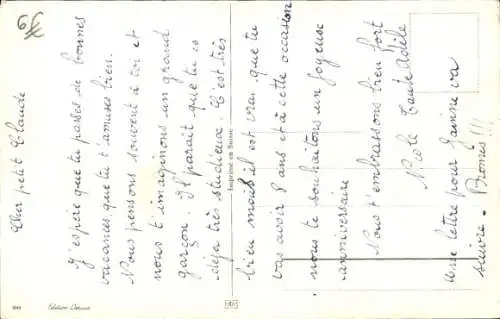 Cher petit Claude
J'espère que tu passes de bonnes
vacances que tu t'amuses bien.
Nous pensons souvent à toi et
nous t'imaginons un grand
garçon. Il paraît que tu es
déja très studieux. C'est très
bien mais il est vrai que tu
vas avoir 8 ans et à cette occasion
nous te souhaitons un joyeux
anniversaire
Nous t'embrassons bien fort
Nicole Tante Adèle
une lettre pour Janine va
suivre. Bromes!!!
Imprimé en Suisse